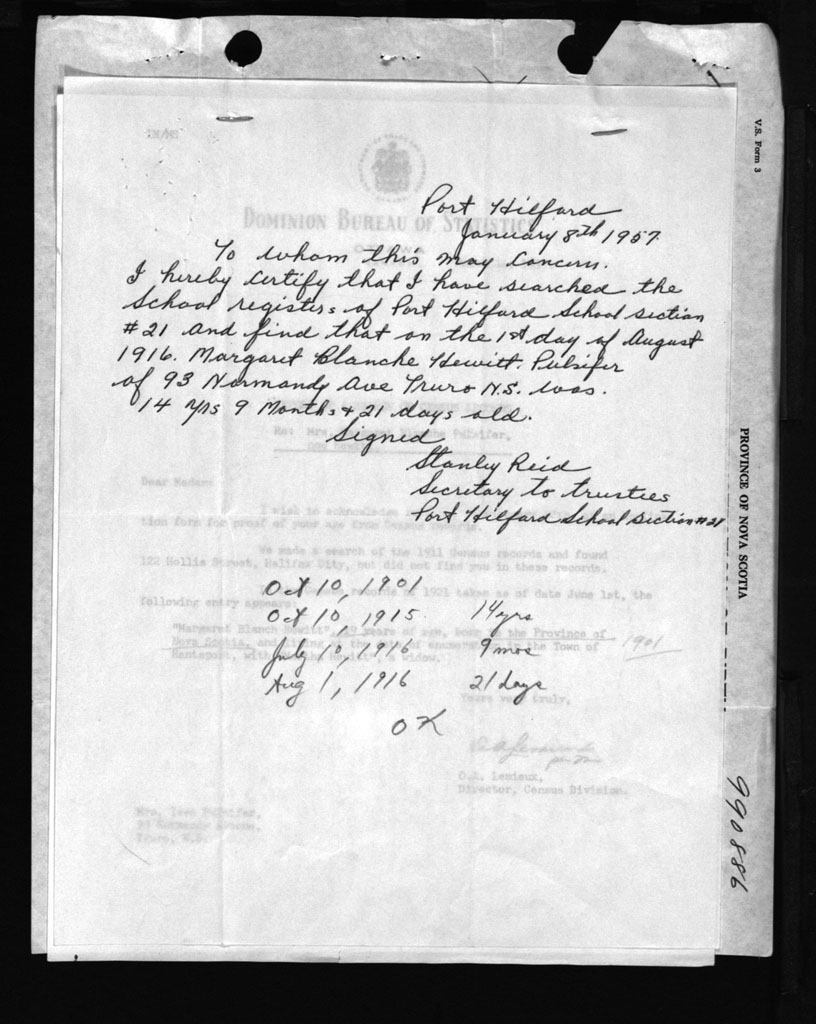 Port Hilford
January 8th 1957.
To whom this may Concern.
I hereby Certify that I have searched the
School registers of Port Hilford School section
#21 and find that on the 1st day of August
1916. Margaret Blanche Hewitt. Pulsifer
of 93 Normandy Ave Truro N.S. was.
14 yrs 9 Months & 21 days old.
Signed
Stanley Reid
Secretary to trustees
Port Hilford School section #21
Oct 10, 1901
Oct 10, 1915. 14 yrs
July 10, 1916 9 mos
Aug 1, 1916 21 days
OK
DOMINION BUREAU OF STATISTICS
OTTAWA
Dear Madam:
I wish to acknowledge
tion form for proof of your age from Census records.
We made a search of the 1911 Census records and found
122 Hollis Street, Halifax City, but did not find you in these records.
records of 1921 taken as of date June 1st, the
following entry appears
"Margaret Blanch Hewitt", 19 years of age, born in the Province of
Nova Scotia, in the Town of
a widow.
1901
Yours very truly,
O.A. Lemieux,
Director, Census Division.
Truro, N.S.
V.S. Form 3
PROVINCE OF NOVA SCOTIA
990886